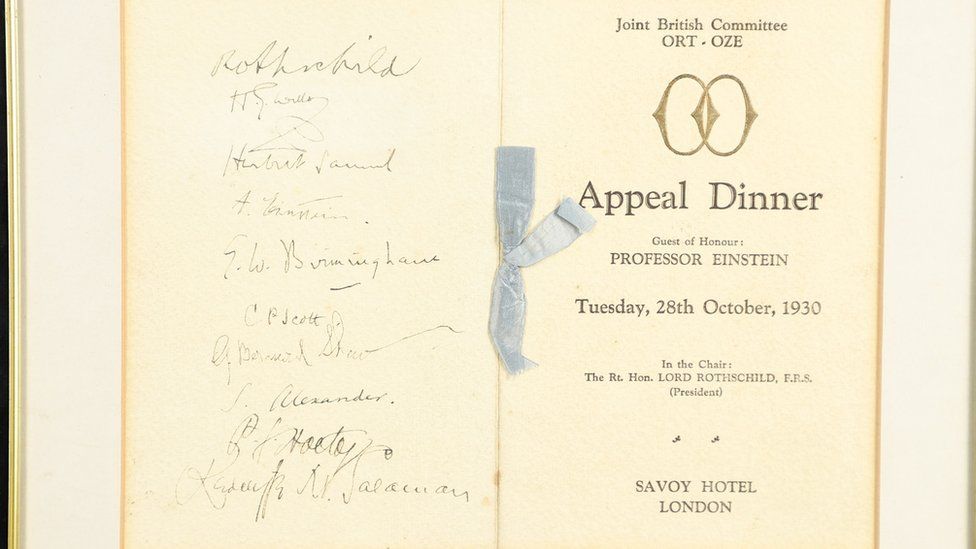 Rothschild
H. G. Wells
Herbert Samuel
A. Einstein.
E. W. Birmingham
C P Scott
G. Bernard Shaw
S. Alexander.
Redcliffe N. Salaman
Joint British Committee
ORT - OZE
Appeal Dinner
Guest of Honour:
PROFESSOR EINSTEIN
Tuesday, 28th October, 1930
In the Chair:
The Rt. Hon. LORD ROTHSCHILD, F.R.S.
(President)
SAVOY HOTEL
LONDON